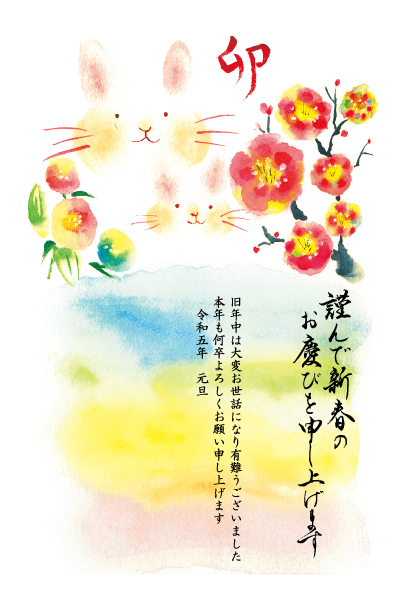 卯
謹んで新春の
お慶びを申し上げます
旧年中は大変お世話になり有難うございました
本年も何卒よろしくお願い申し上げます
令和五年　元旦